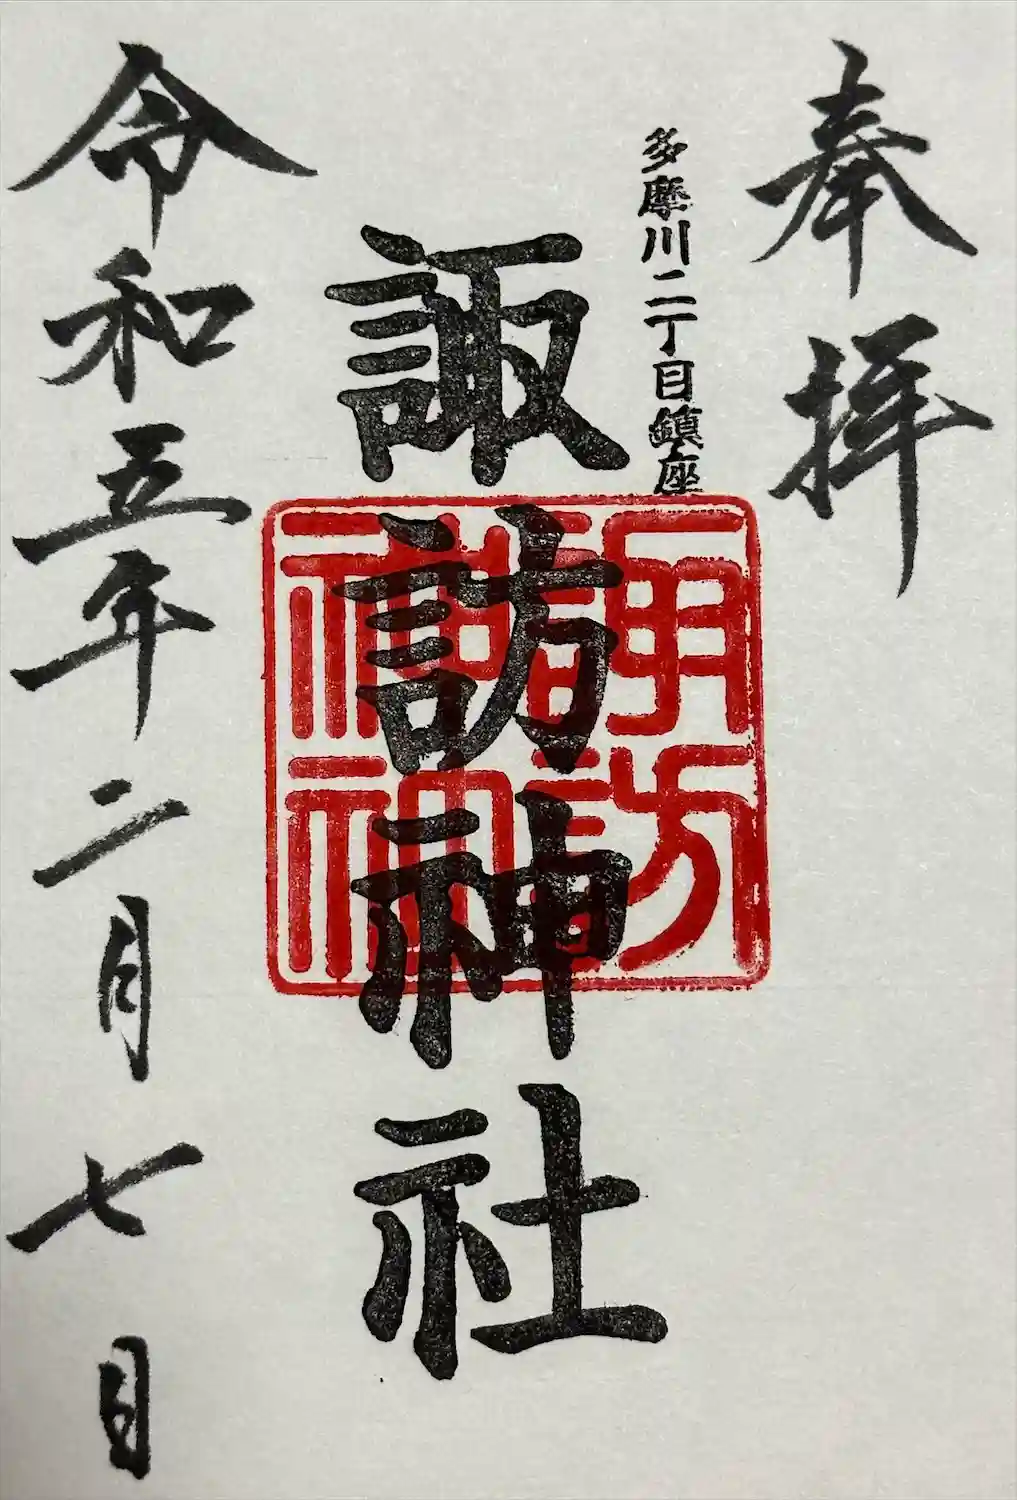 奉拝
多摩川二丁目鎮座
諏訪神社
諏訪
神社
令和五年二月七日